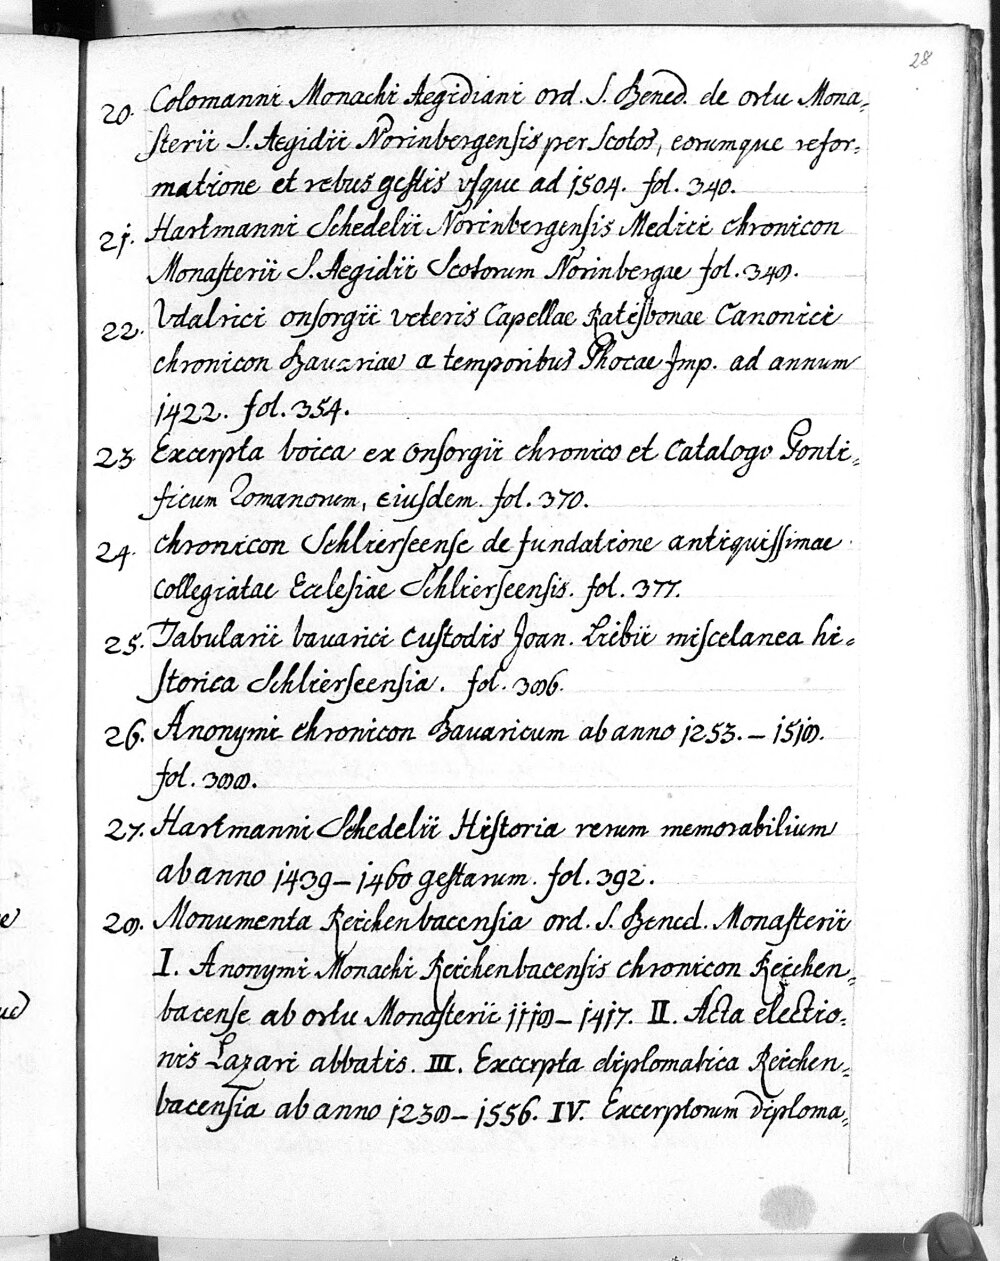 28
20. Colomanni Monachi Aegidiani ord. S. Bened. de ortu Mona-
sterii S. Aegidii Norinbergensis per Scotos, eorumque refor-
matione et rebus gestis usque ad 1504. fol. 340.
21. Hartmanni Schedelii Norinbergensis Medici chronicon
Monasterii S. Aegidii Scotorum Norinbergae fol. 348.
22. Udalrici onsorgii veteris Capellae Ratisbonae Canonici
chronicon Bavariae a temporibus Phocae Imp. ad annum
1422. fol. 354.
23 Excerpta boica ex onsorgii chronico et Catalogo Ponti-
ficum Romanorum, eiusdem. fol. 370.
24. chronicon Schlierseense de fundatione antiquissimae
collegiatae Ecclesiae Schlierseensis. fol. 377.
25. Tabularii bavarici custodis Joan. Liebii miscelanea hi-
storica Schlierseensia. fol. 386.
26. Anonymi chronicon Bavaricum ab anno 1253. – 1518.
fol. 388.
27. Hartmanni Schedelii Historia rerum memorabilium
ab anno 1439 – 1460 gestarum. fol. 392.
28. Monumenta Reichenbacensia ord. S. Bened. Monasterii
I. Anonymi Monachi Reichenbacensis chronicon Reichen-
bacense ab ortu Monasterii 1118 – 1417. II. Acta electio-
nis Lazari abbatis. III. Excerpta diplomatica Reichen-
bacensia ab anno 1238 – 1556. IV. Excerptorum diploma-